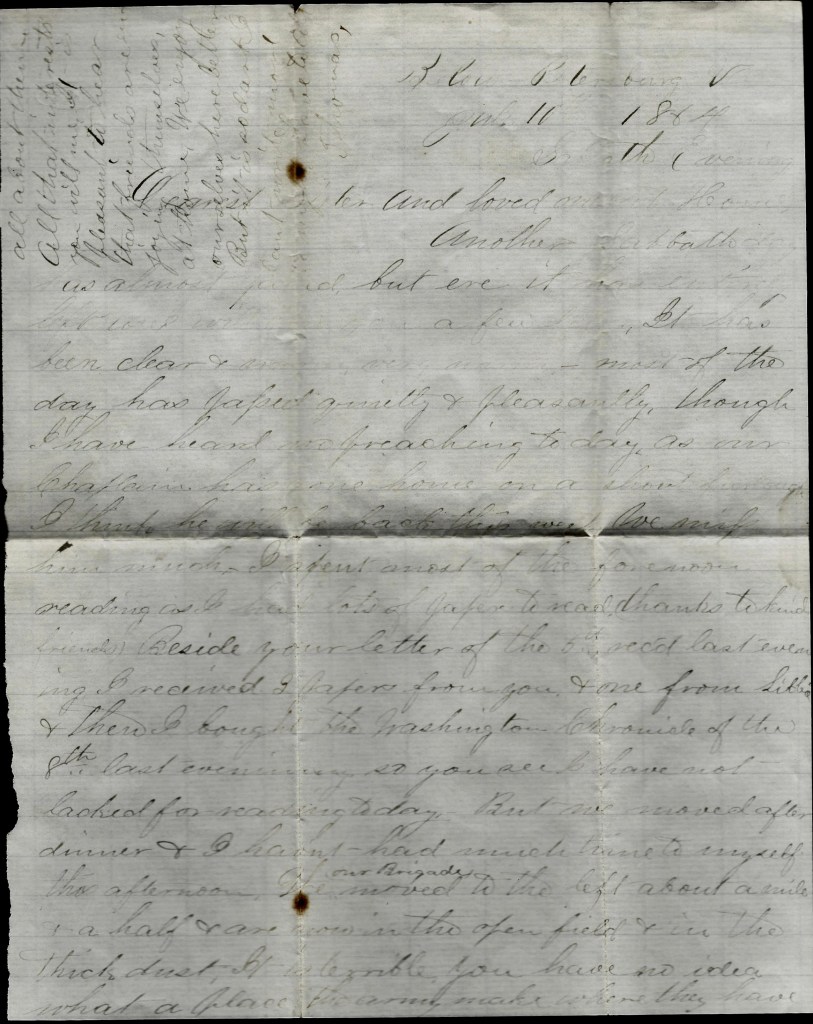 all about them
All that interests
you will me
pleasant to hear
that friends are
joying themselves
at Home. We enjoy
ourselves here better
But
Thomas,
Petersburg V
10 1864
Evening
Dearest Sister And loved ones at Home
Another Sabbath
us almost but ere it
you a few It has
been clear & most of the
day has passed quietly & pleasantly, though
I have heard no preaching to day, as our
Chaplain has gone home on a short
I think he will be back this week We miss
him much. I spent most of the forenoon
reading as I had lots of paper to read, thanks to kind
friends) Beside your letter of the 5th, recd last even
ing I received 2 papers from you, & one from
& then I bought the Washington Chronicle of the
8th last evening so you see I have not
lacked for reading to day. But we moved after
dinner & I havnt had much time to myself
this afternoon, We our Brigade moved to the left about a mile
& a half & are now in the open field & in the
thick dust, It is terrible, you have no idea
what a place the army make where they have